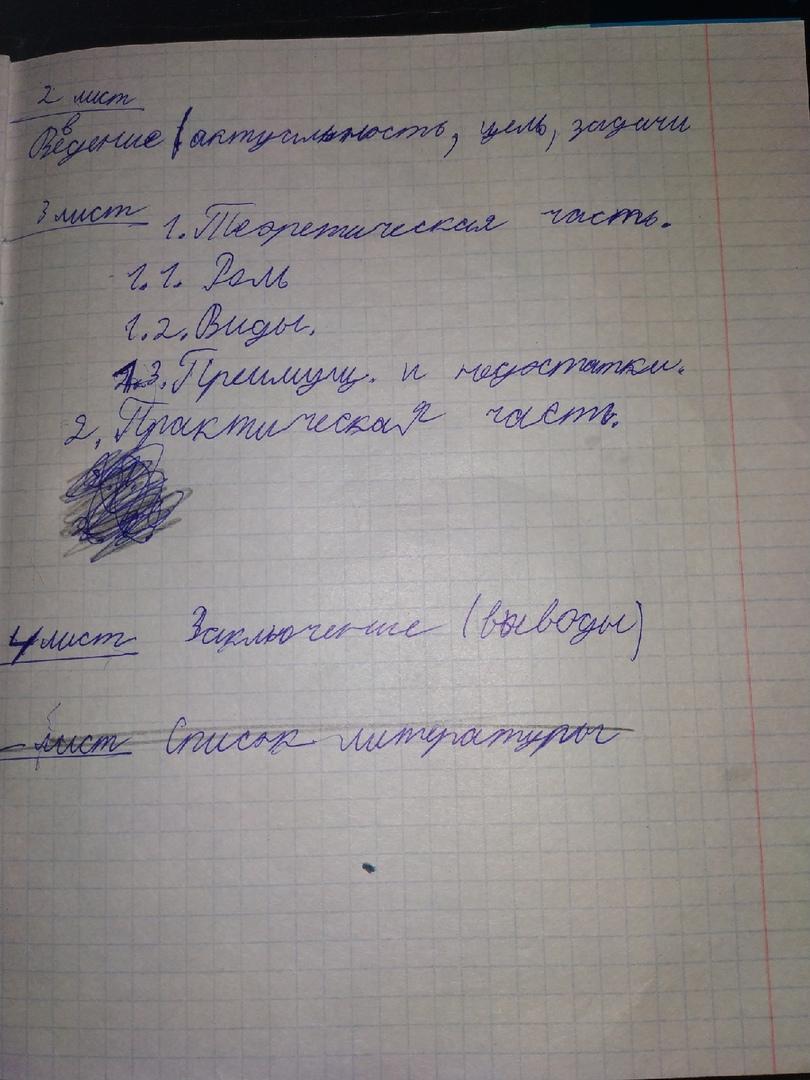 2 лист
Введение (актуальность, цель, задачи
3 лист 1. Теоретическая часть.
1.1. Роль
1.2. Виды.
1.3. Преимущ. и недостатки.
2. Практическая часть.
4 лист Заключение (выводы)
лист Список литературы